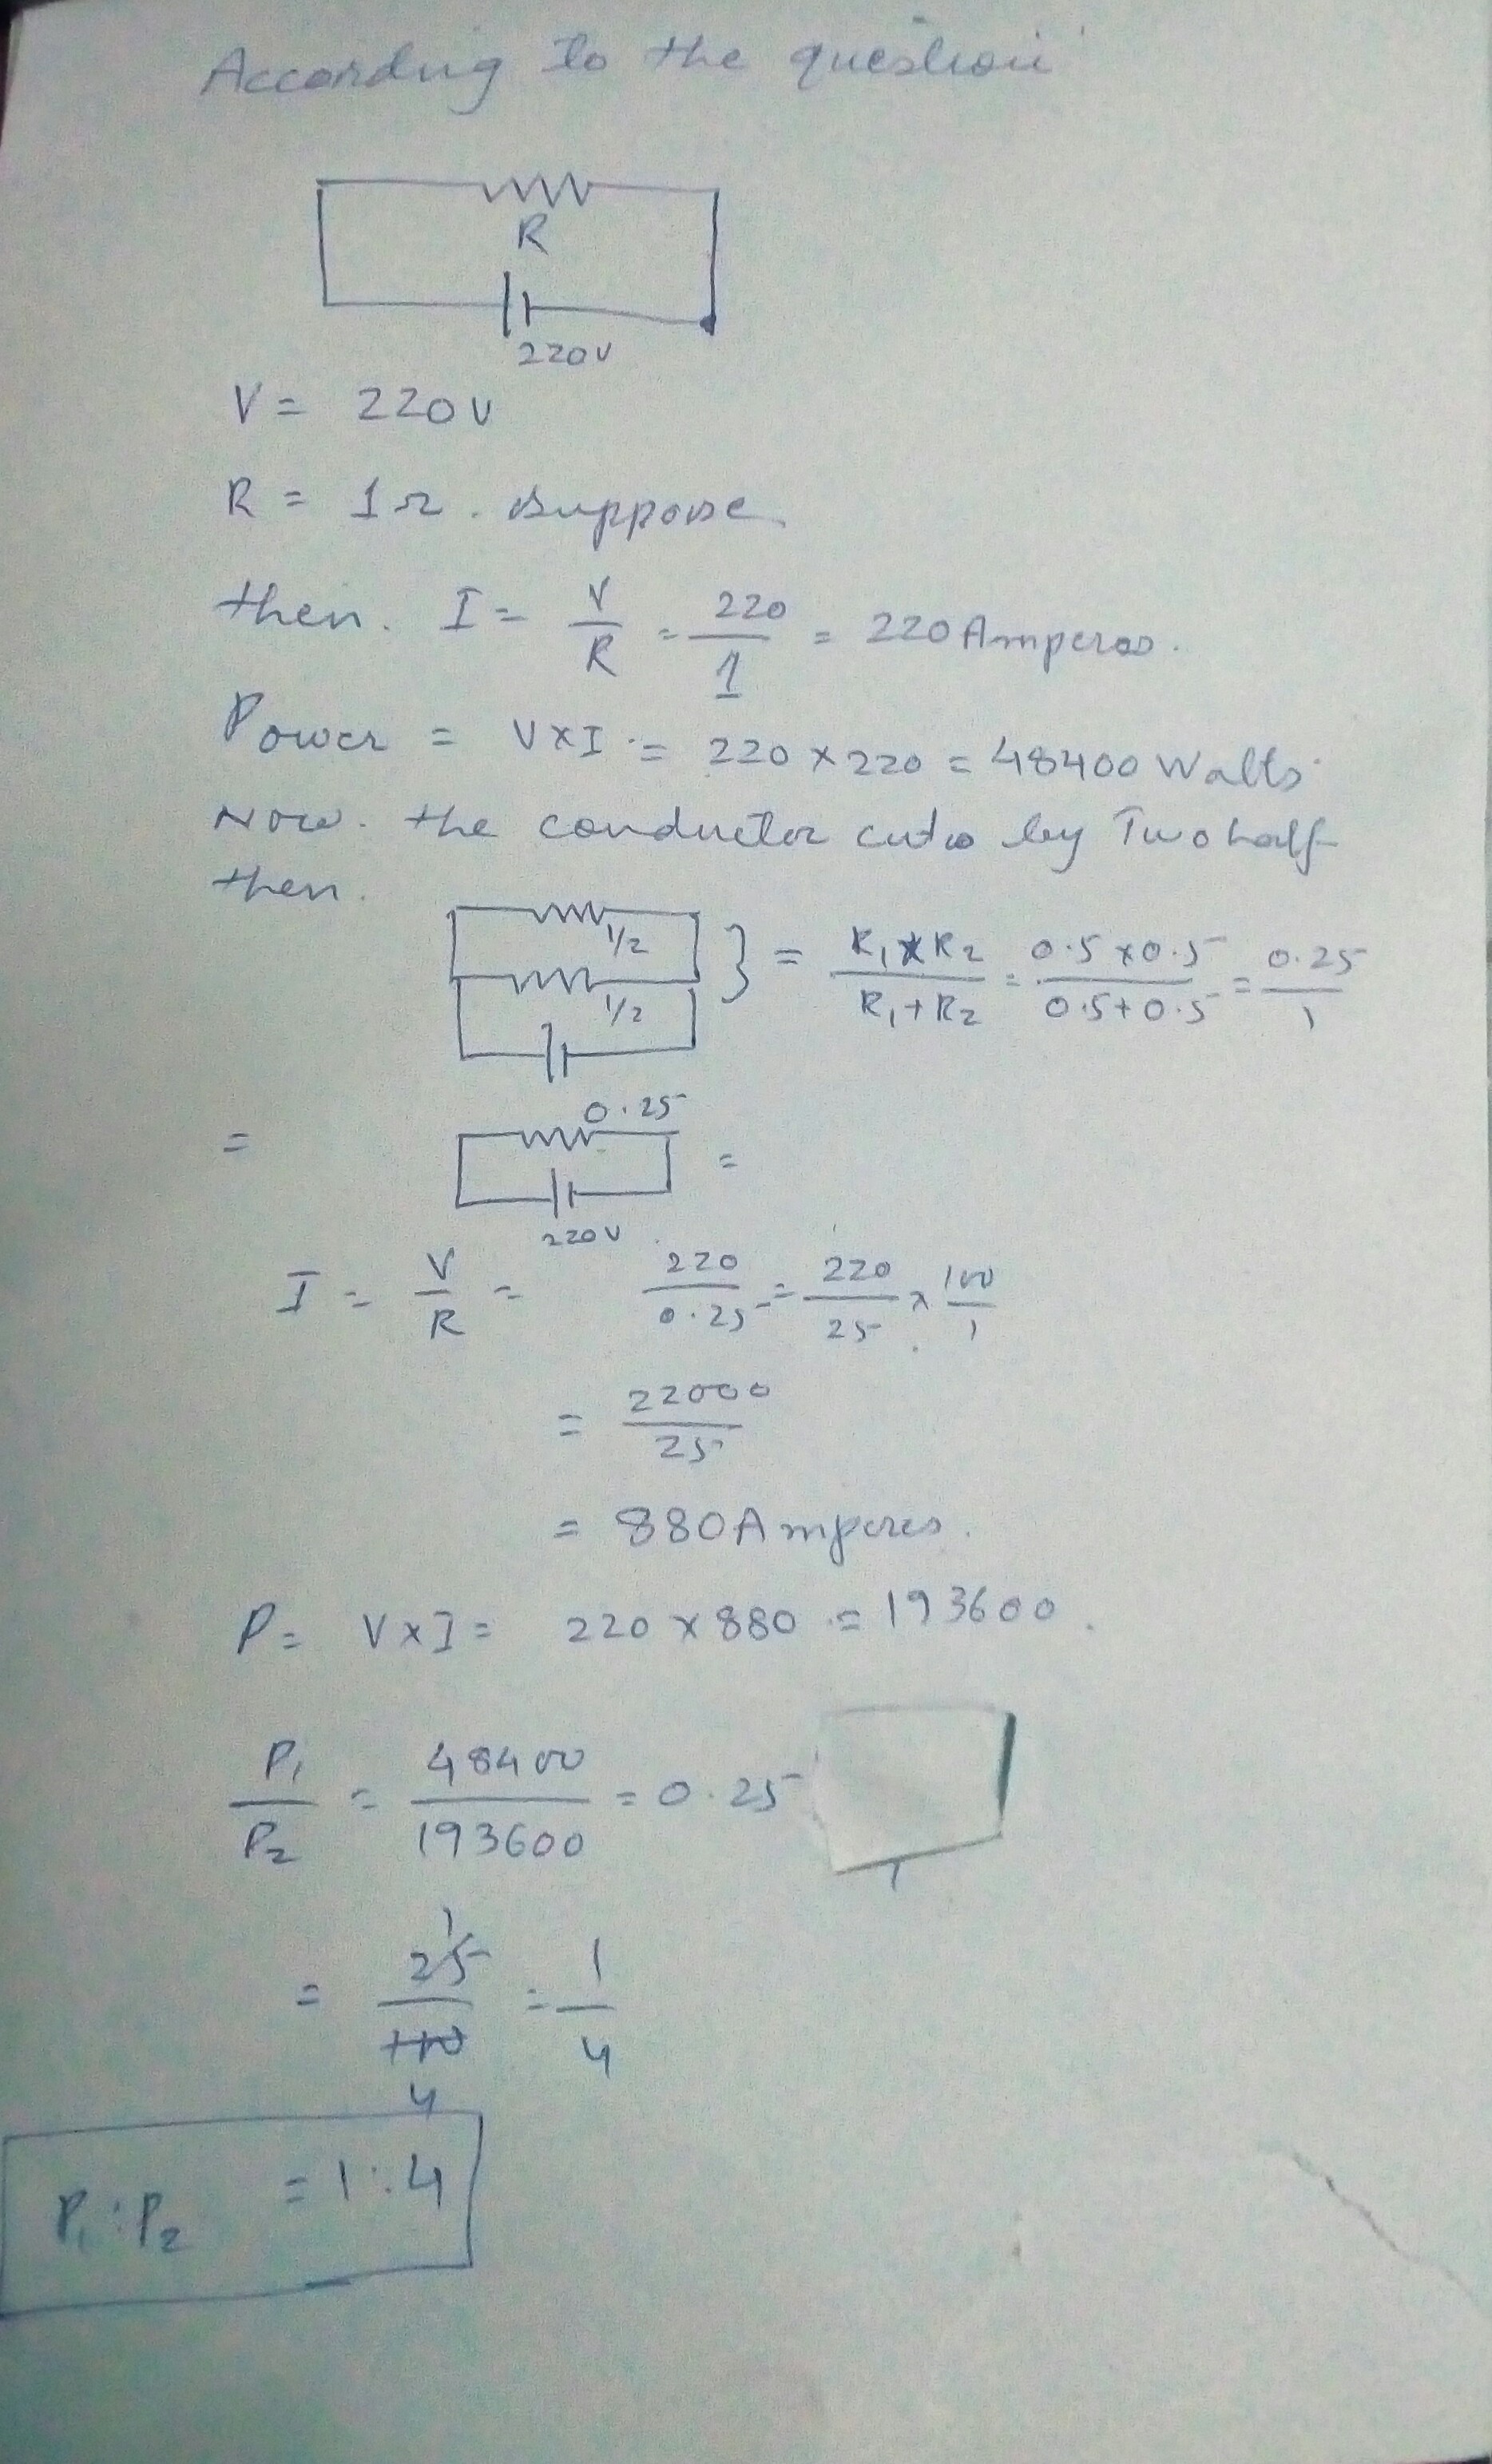 According to the question
R
220V
V = 220V
R = 1Ω. suppose
then. I = V/R = 220/1 = 220 Amperes.
Power = V×I = 220×220 = 48400 Watts
Now. the conductor cuts by Two half
then.
1/2
1/2
} = R₁×R₂/R₁+R₂ = 0.5×0.5/0.5+0.5 = 0.25/1
0.25
= =
220V
I = V/R = 220/0.25 = 220/25 × 100/1
= 22000/25
= 880 Amperes.
P = V×I = 220×880 = 193600.
P₁/P₂ = 48400/193600 = 0.25
= 25/100 = 1/4
1
4
P₁:P₂ = 1:4